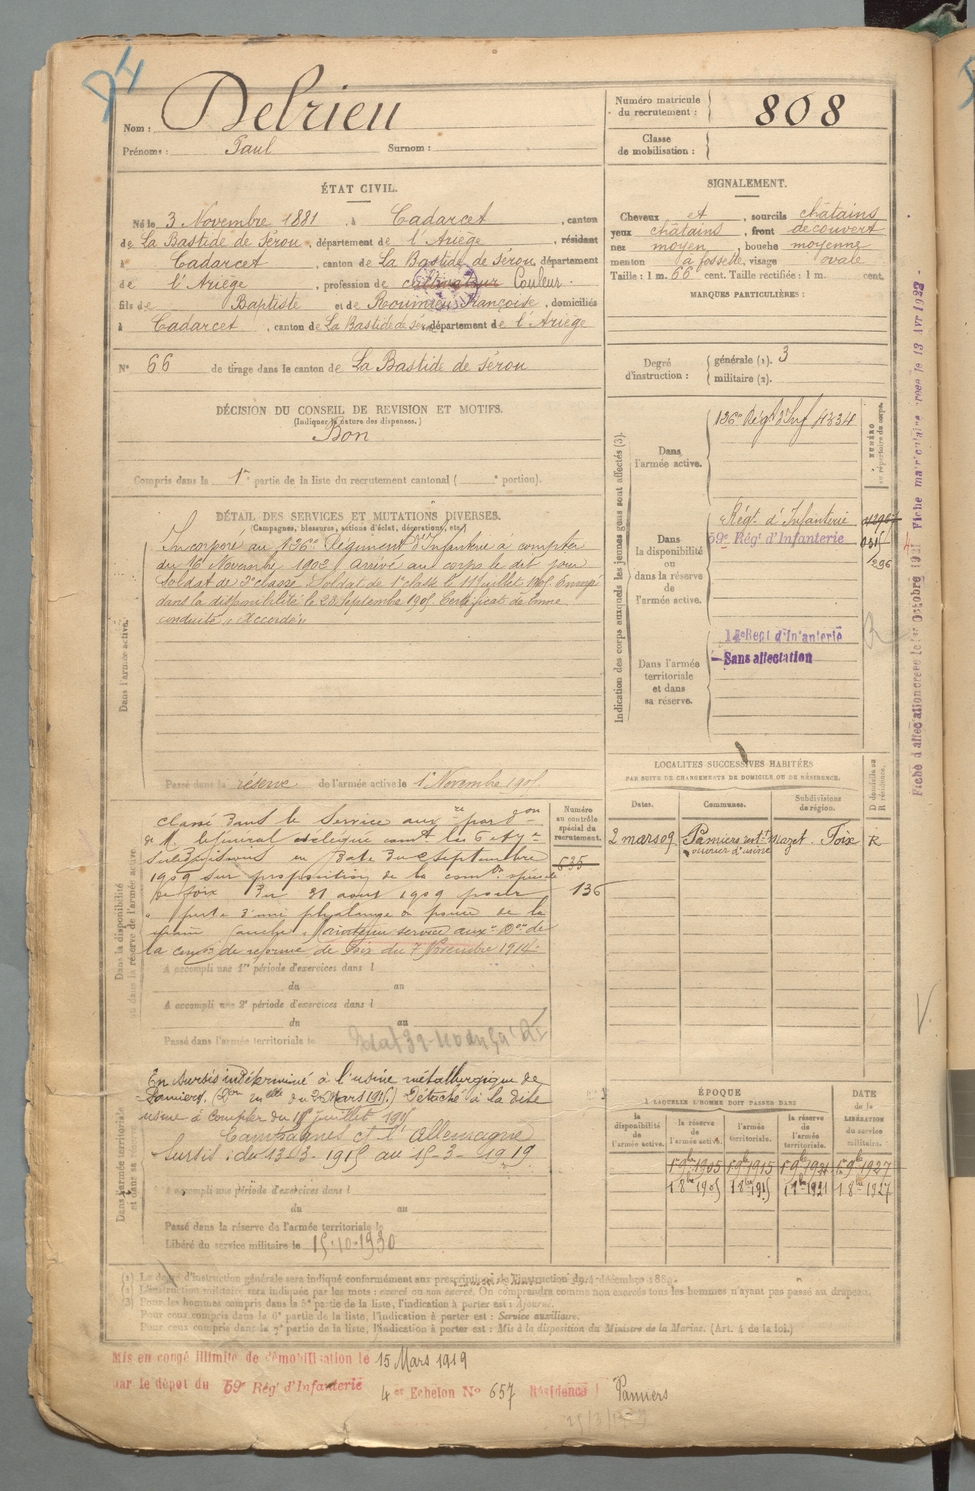 84
Nom : Delrieu
Prénoms : Paul Surnom :
Numéro matricule du recrutement : 808
Classe de mobilisation :
ÉTAT CIVIL.
Né le 3 Novembre 1881, à Cadarcet, canton
de La Bastide de Sérou, département de l'Ariège, résidant
à Cadarcet, canton de La Bastide de Sérou, département
de l'Ariège, profession de cultivateur Couleur.
fils de Baptiste et de Françoise, domiciliés
à Cadarcet, canton de La Bastide de Sérou, département de l'Ariège
N° 66 de tirage dans le canton de La Bastide de Sérou
SIGNALEMENT.
Cheveux et, sourcils châtains
yeux châtains, front découvert
nez moyen, bouche moyenne
menton à fossette, visage ovale
Taille : 1 m. 66 cent. Taille rectifiée : 1 m. cent.
MARQUES PARTICULIÈRES :
Degré d'instruction : générale (1). 3
militaire (2).
DÉCISION DU CONSEIL DE REVISION ET MOTIFS.
(Indiquer la nature des dispenses.)
Bon
Compris dans la 1re partie de la liste du recrutement cantonal ( e portion).
DÉTAIL DES SERVICES ET MUTATIONS DIVERSES.
(Campagnes, blessures, actions d'éclat, décorations, etc.)
Dans l'armée active.
Incorporé au 126e Régiment d'Infanterie à compter
du 16 Novembre 1902 Arrivé au corps le dit jour
Soldat de 2e classe Soldat de 1e classe le 11 Juillet 1905 Envoyé
dans la disponibilité le 23 Septembre 1905 Certificat de bonne
conduite "Accordé"
Passé dans la réserve de l'armée active le 1er Novembre 1905
Indication des corps auxquels les jeunes gens sont affectés (3).
NUMÉRO au répertoire du corps.
Dans l'armée active. 126e Régt d'Inf 4334
Dans la disponibilité ou dans la réserve de l'armée active.
Régt d'Infanterie
59e Rég' d'Infanterie
Dans l'armée territoriale et dans sa réserve.
Régt d'Infanterie
Sans affectation
Fiche matriculaire 13 Avr 1922
LOCALITÉS SUCCESSIVES HABITÉES
PAR SUITE DE CHANGEMENTS DE DOMICILE OU DE RÉSIDENCE.
Dates. Communes. Subdivisions de région. D domicile ou R résidence.
2 mars 09 Pamiers Mazet Foix R
ouvrier d'usine
Dans la disponibilité ou dans la réserve de l'armée active
Numéro au contrôle spécial du recrutement.
635
136
Classé dans le Service auxre par Don
de M. le Général délégué
Subdivisions en date du 2 Septembre
1909 sur proposition de la comon spéciale
de Foix du 31 août 1909 pour
" perte d'une phalange du pouce de la
main gauche. Maintenu service auxre Don de
la comon de réforme de Foix du 7 Novembre 1914
A accompli une 1re période d'exercices dans l
du au
A accompli une 2e période d'exercices dans l
du au
Passé dans l'armée territoriale le
Dans l'armée territoriale et dans sa réserve
En sursis indéterminé à l'usine métallurgique de
Pamiers. Détaché à la dite
usine à compter du 15 juillet 1915
Campagnes ct l'Allemagne
Sursis : du 13-3-1915 au 15-3-1919
A accompli une période d'exercices dans l
du au
Passé dans la réserve de l'armée territoriale le
Libéré du service militaire le 15-10-1930
ÉPOQUE
À LAQUELLE L'HOMME DOIT PASSER DANS
la disponibilité de l'armée active. la réserve de l'armée active. l'armée territoriale. la réserve de l'armée territoriale.
DATE de la LIBÉRATION du service militaire.
1 9bre 1905 1 9bre 1915 1 9bre 1921 1 9bre 1927
1 8bre 1905 1 8bre 1915 1 8bre 1921 1 8bre 1927
(1) Le degré d'instruction générale sera indiqué conformément aux prescriptions de l'instruction du 4 décembre 1889.
(2) L'instruction militaire sera indiquée par les mots : exercé ou non exercé. On comprendra comme non exercés tous les hommes n'ayant pas passé au drapeau.
(3) Pour les hommes compris dans la 5e partie de la liste, l'indication à porter est : Ajourné.
Pour ceux compris dans la 6e partie de la liste, l'indication à porter est : Service auxiliaire.
Pour ceux compris dans la 7e partie de la liste, l'indication à porter est : Mis à la disposition du Ministre de la Marine. (Art. 4 de la loi.)
Mis en congé illimité de démobilisation le 15 Mars 1919
par le dépôt du 59e Rég' d'Infanterie 4er Echelon N° 657 Résidence Pamiers